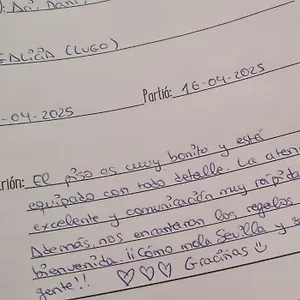 : Ari, Dani,
GALICIA (LUGO)
-04-2025 Partió: 16-04-2025
rión: El piso es muy bonito y está
equipado con todo detalle. La aten
excelente y comunicación muy rápida
Además, nos encantaron los regalos
bienvenida. ¡¡Cómo mola Sevilla y s
gente!! ♡♡♡ Gracias ☺